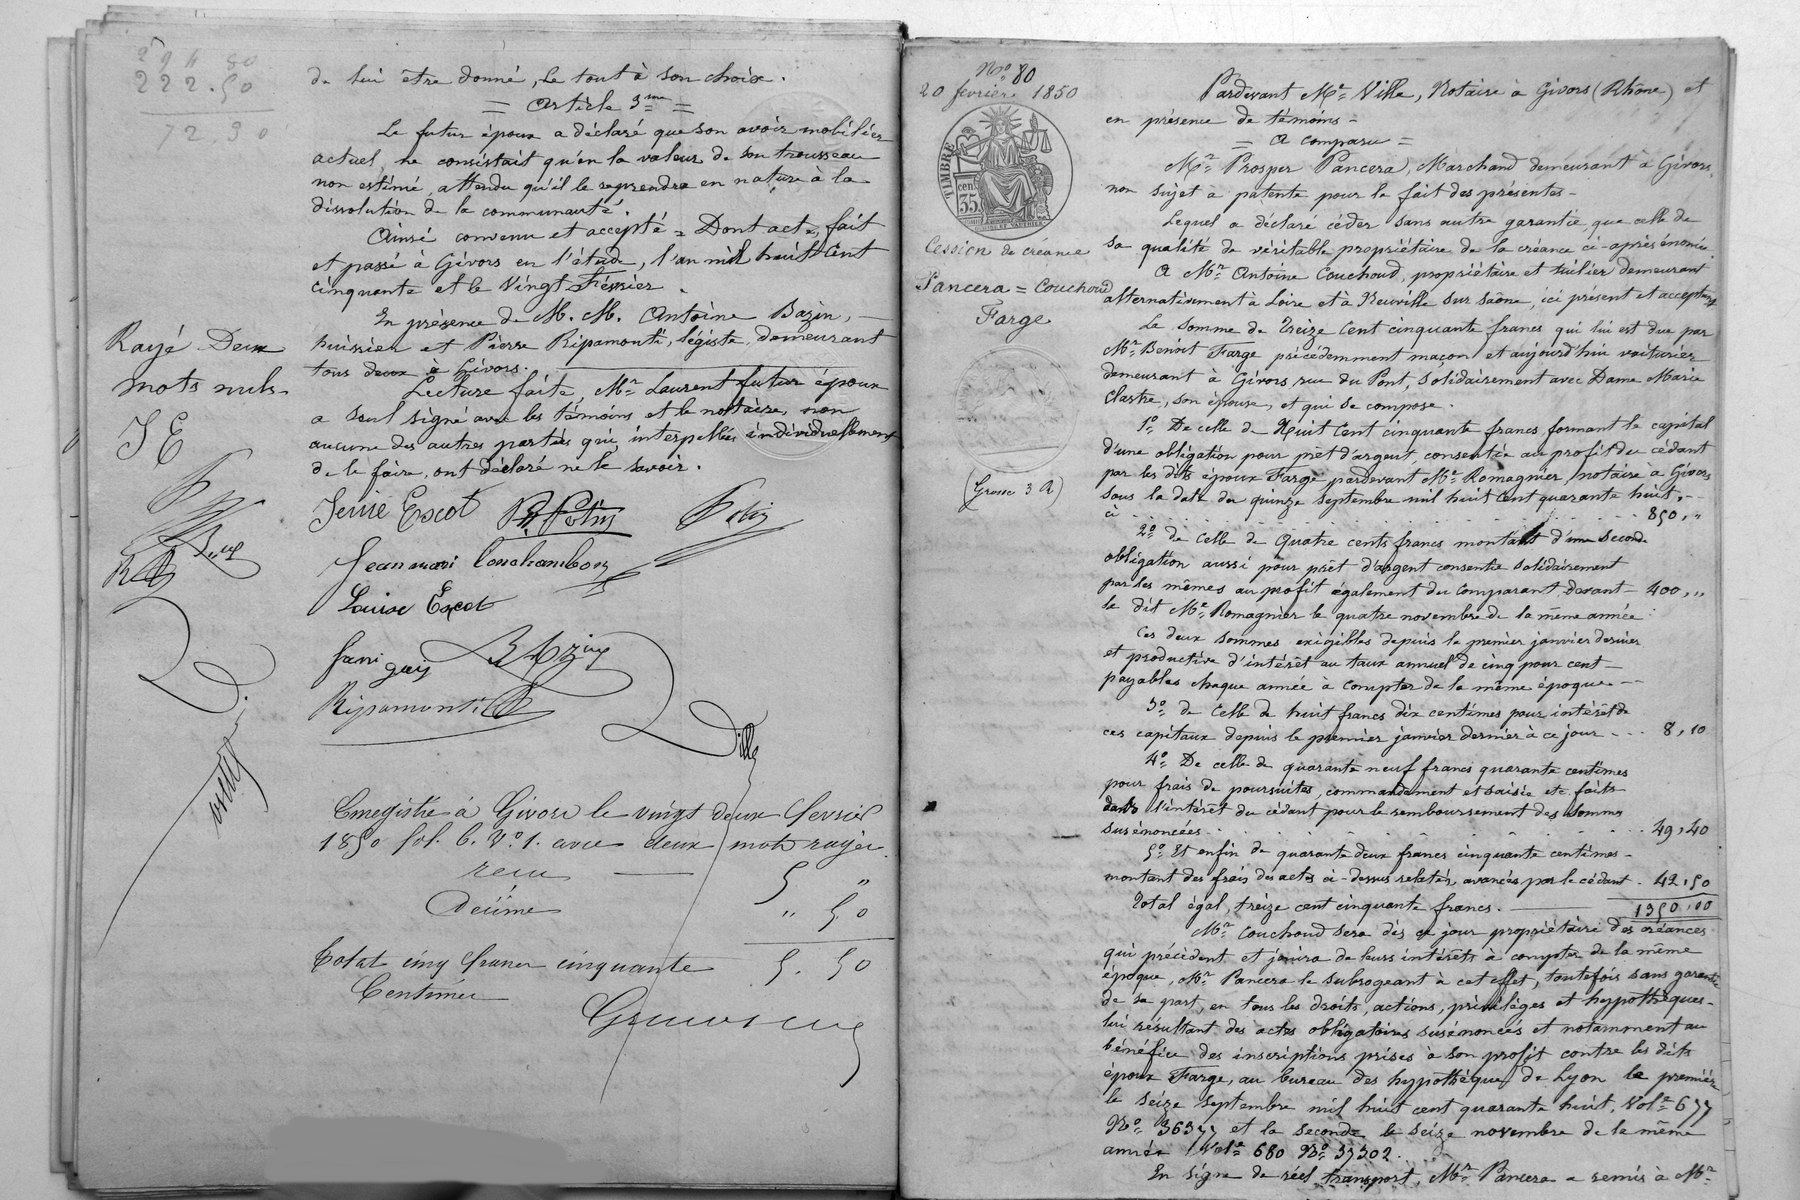 294 80
222.50
72 30
de lui être donné, le tout à son choix.
= Article 3me =
Le futur époux a déclaré que son avoir mobilier
actuel ne consistait qu'en la valeur de son trousseau
non estimé, attendu qu'il le reprendra en nature à la
dissolution de la communauté.
Ainsi convenu et accepté = Dont acte, fait
et passé à Givors en l'étude, l'an mil huit cent
cinquante et le Vingt Février.
En présence de M. M. Antoine Bazin,
huissier et Pierre Ripamonti, légiste, demeurant
tous deux à Givors.
Lecture faite, Mr. Laurent futur époux
a seul signé avec les témoins et le notaire, non
aucune des autres parties qui, interpellées individuellement
de le faire, ont déclaré ne le savoir.
Rayé Deux
mots nuls
J E
Jenie Escot
Jean mari Conchambon
Louise Escot
Ripamonti
Ville
Enregistré à Givors le vingt deux Fevrier
1850 fol. 6. Vo. 1. avec deux mots rayés.
recu — 5 "
Decime " 50
Total cinq francs cinquante 5. 50
Centimes
No 80
20 fevrier 1850
TIMBRE
cen.
35
Cession de créance
Pancera = Couchoud
Farge
(Grosse 3 R)
Pardevant Me. Ville, Notaire à Givors (Rhône) et
en présence de témoins =
= A comparu =
Mr. Prosper Pancera, Marchand demeurant à Givors,
non sujet à patente pour le fait des présentes -
Lequel a déclaré céder sans autre garantie que celle de
sa qualité de véritable propriétaire de la créance ci-après énoncée
A Mr. Antoine Couchoud, propriétaire et tuilier demeurant
alternativement à Loire et à Neuville sur Saône, ici présent et acceptant
La somme de Treize Cent cinquante francs qui lui est due par
Mr. Benoit Farge précédemment maçon et aujourd'hui voiturier
demeurant à Givors rue du Pont, solidairement avec Dame Marie
Clastre, son épouse, et qui se compose.
1o. De celle de Huit Cent cinquante francs formant le capital
d'une obligation pour prêt d'argent, consentie au profit du cédant
par les dits époux Farge pardevant Me. Romagnier, notaire à Givors
sous la date du quinze septembre mil huit cent quarante huit,
ci . . . 850, "
2o. de Celle de quatre cents francs montant d'une seconde
obligation aussi pour prêt d'argent consentie solidairement
par les mêmes au profit également du Comparant, devant — 400, "
le dit Me. Romagnier le quatre novembre de la même année.
Ces deux sommes exigibles depuis le premier janvier dernier
et productive d'intérêt au taux annuel de cinq pour cent -
payables chaque année à compter de la même époque. —
3o. de Celle de huit francs dix centimes pour intérêt de
ces capitaux depuis le premier janvier dernier à ce jour - - - 8, 10
4o. De celle de quarante neuf francs quarante centimes
pour frais de poursuites, commandement et saisie etc. faits
dans l'intérêt du cédant pour le remboursement des sommes
susénoncées . . . 49, 40
5o. Et enfin de quarante deux francs cinquante centimes -
montant des frais des actes ci-dessus relatés, avancés par le cédant . 42, 50
Total égal, treize cent cinquante francs. — 1350.00
Mr. Couchoud sera dès ce jour propriétaire des créances
qui précèdent et jouira de leurs intérêts à compter de la même
époque, Mr. Pancera le subrogeant à cet effet, toutefois sans garantie
de sa part, en tous les droits, actions, privilèges et hypothèques -
lui résultant des actes obligatoires susénoncés et notamment au
bénéfice des inscriptions prises à son profit contre les dits
époux Farge, au bureau des hypothèques de Lyon la première
le seize septembre mil huit cent quarante huit, Vole. 677
No. 36377 et la seconde le seize novembre de la même
année, Vole. 680 No. 37302.
En signe de réel transport, Mr. Pancera a remis à Mr.